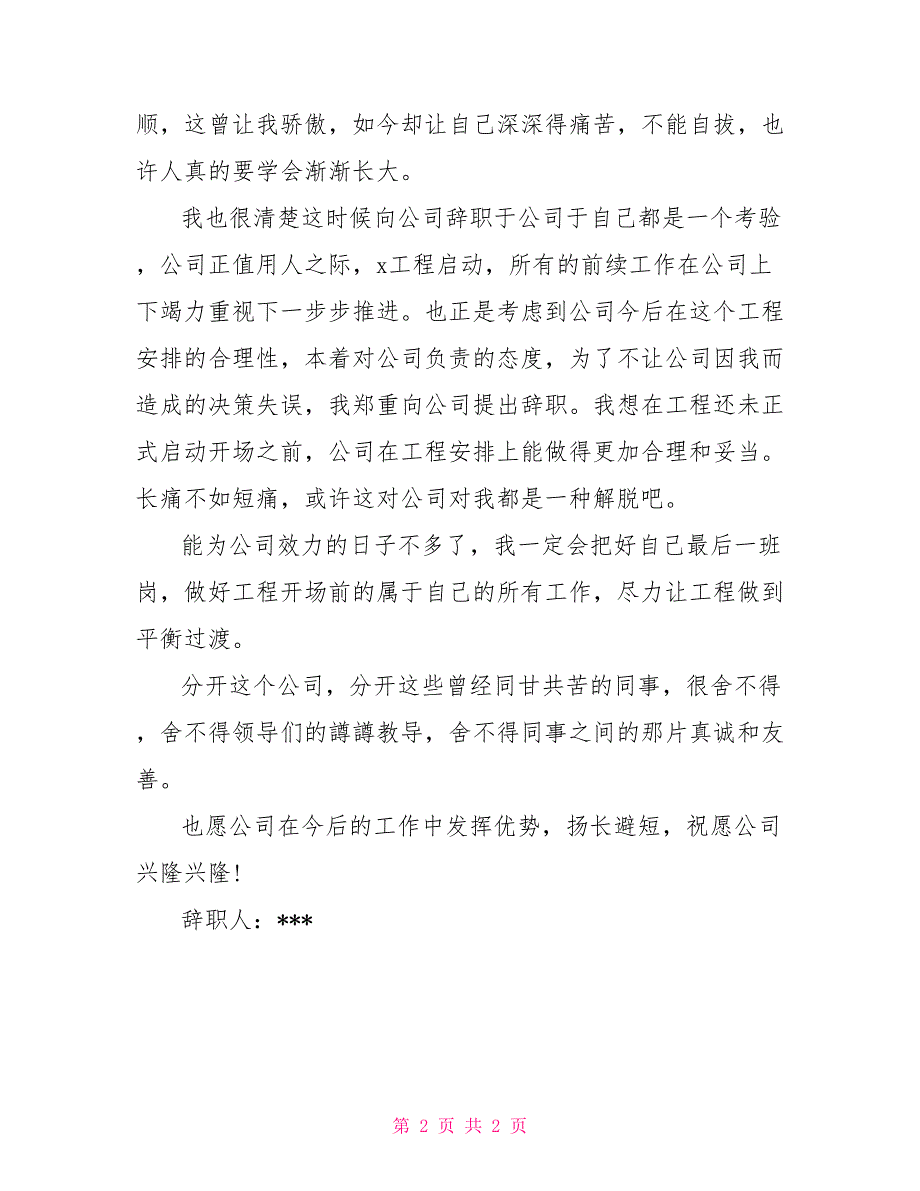 顺，这曾让我骄傲，如今却让自己深深得痛苦，不能自拔，也
许人真的要学会渐渐长大。
我也很清楚这时候向公司辞职于公司于自己都是一个考验
，公司正值用人之际，x工程启动，所有的前续工作在公司上
下竭力重视下一步步推进。也正是考虑到公司今后在这个工程
安排的合理性，本着对公司负责的态度，为了不让公司因我而
造成的决策失误，我郑重向公司提出辞职。我想在工程还未正
式启动开场之前，公司在工程安排上能做得更加合理和妥当。
长痛不如短痛，或许这对公司对我都是一种解脱吧。
能为公司效力的日子不多了，我一定会把好自己最后一班
岗，做好工程开场前的属于自己的所有工作，尽力让工程做到
平衡过渡。
分开这个公司，分开这些曾经同甘共苦的同事，很舍不得
，舍不得领导们的譐譐教导，舍不得同事之间的那片真诚和友
善。
也愿公司在今后的工作中发挥优势，扬长避短，祝愿公司
兴隆兴隆!
辞职人：***
第 2 页 共 2 页